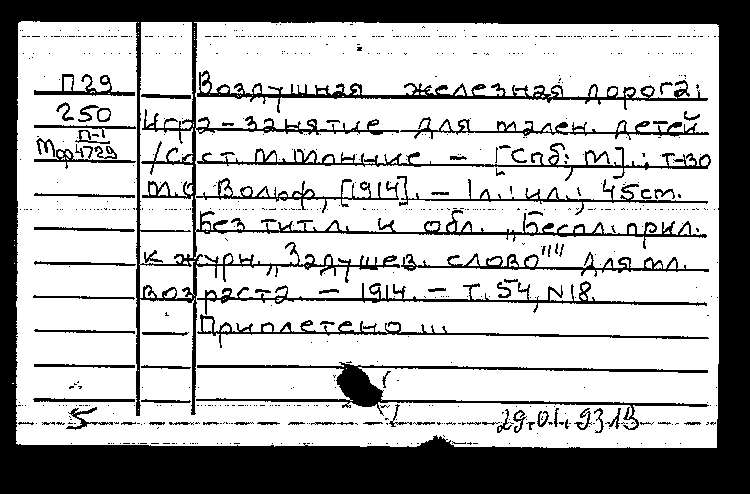 П29
250
П-1
Мор 4729
Воздушная железная дорога:
Игра-занятие для мален. детей
/Сост. М. Монние. — [Спб; М.]: Т-во
М.О. Вольф, [1914]. — 1л.: ил.; 45см.
Без тит. л. и обл. „Беспл. прил.
к журн. „Задушев. слово"" для мл.
возраста. — 1914. — Т. 54, N18.
Приплетено ...
5
29.01.93